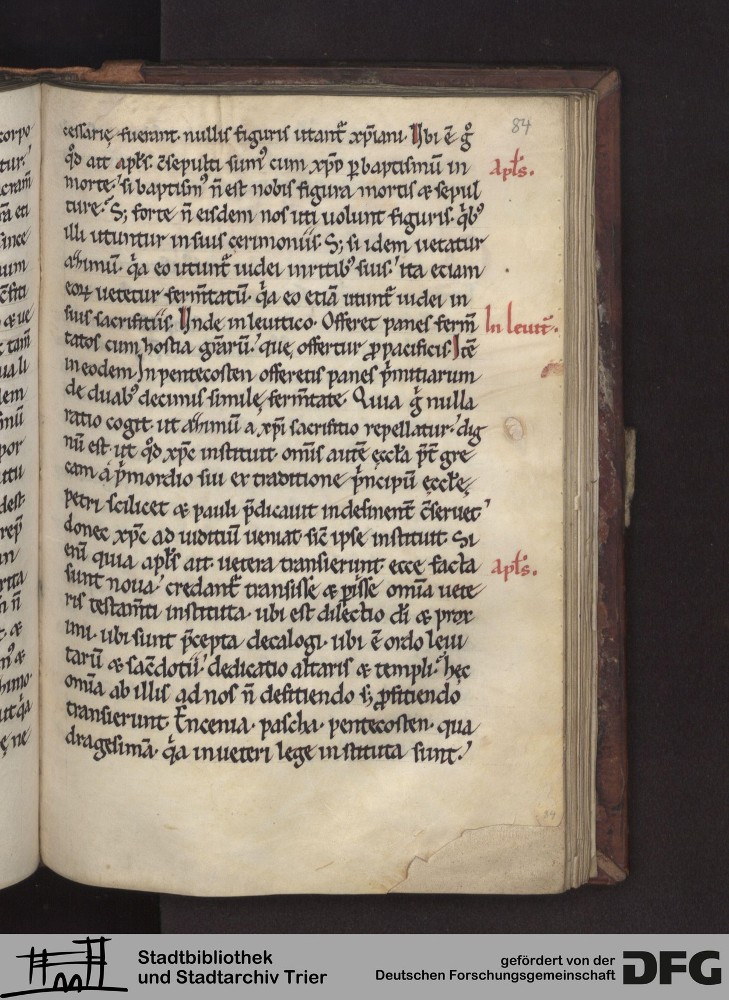 84
cessarie fuerant. nullis figuris utant᷑ xp̄iani. Ubi ē gͦ
qd̄ ait apl̄s. c̄sepulti sum᷒ cum xp̄o ꝑ baptismū in
morte. si baptism᷒ n̄ est nobis figura mortis & sepul
ture. S; forte n̄ eisdem nos uti uolunt figuris. qͥb᷒
illi utuntur in suis cerimoniis. S; si idem uetatur
azimū. qͥa eo utunt᷑ iudei in ritib᷒ suis. ita etiam
eoꝝ uetetur ferm̄tatū. qͥa eo etiā utunt᷑ iudei in
suis sacrifitiis. Unde in leuitico. Offeret panes ferm̄
tatos cum hostia gr̄arū. que offertur ꝓ pacificis. Itē
in eodem In pentecosten offeretis panes p̄mitiarum
de duab᷒ decimis simile fermtate. Quia ḡ nulla
ratio cogit. ut azimū a xp̄i sacrifitio repellatur. dig
nū est. ut qd̄ xp̄c instituit. omis autē eccl̄a p̄t gre
cam a p̄mordio sui ex traditione p̄ncipū eccl̄e,
petri scilicet & pauli p̄dicauit indesinent᷑ c̄seruet
donec xp̄c ad iuditiū ueniat. sic̄ ipse instituit. Si
enī quia apl̄s ait uetera transierunt ecce facta
sunt noua. credant᷑ transisse & p̄isse om̄ia uete
ris testam̄ti instituta. ubi est dilectio dī & prox
imi. ubi sunt p̄cepta decalogi. ubi ē ordo leui
tarū & sac̄dotū. dedicatio altaris & templi. hec
om̄ia ab illis ad nos n̄ defitiendo s; ꝓfitiendo
transierunt. Encenia. pascha. pentecosten. qua
dragesimā. qͥa in ueteri lege instituta sunt.
apl̄s.
In leuit̄.
apl̄s.
84
Stadtbibliothek
und Stadtarchiv Trier
gefördert von der
Deutschen Forschungsgemeinschaft
DFG